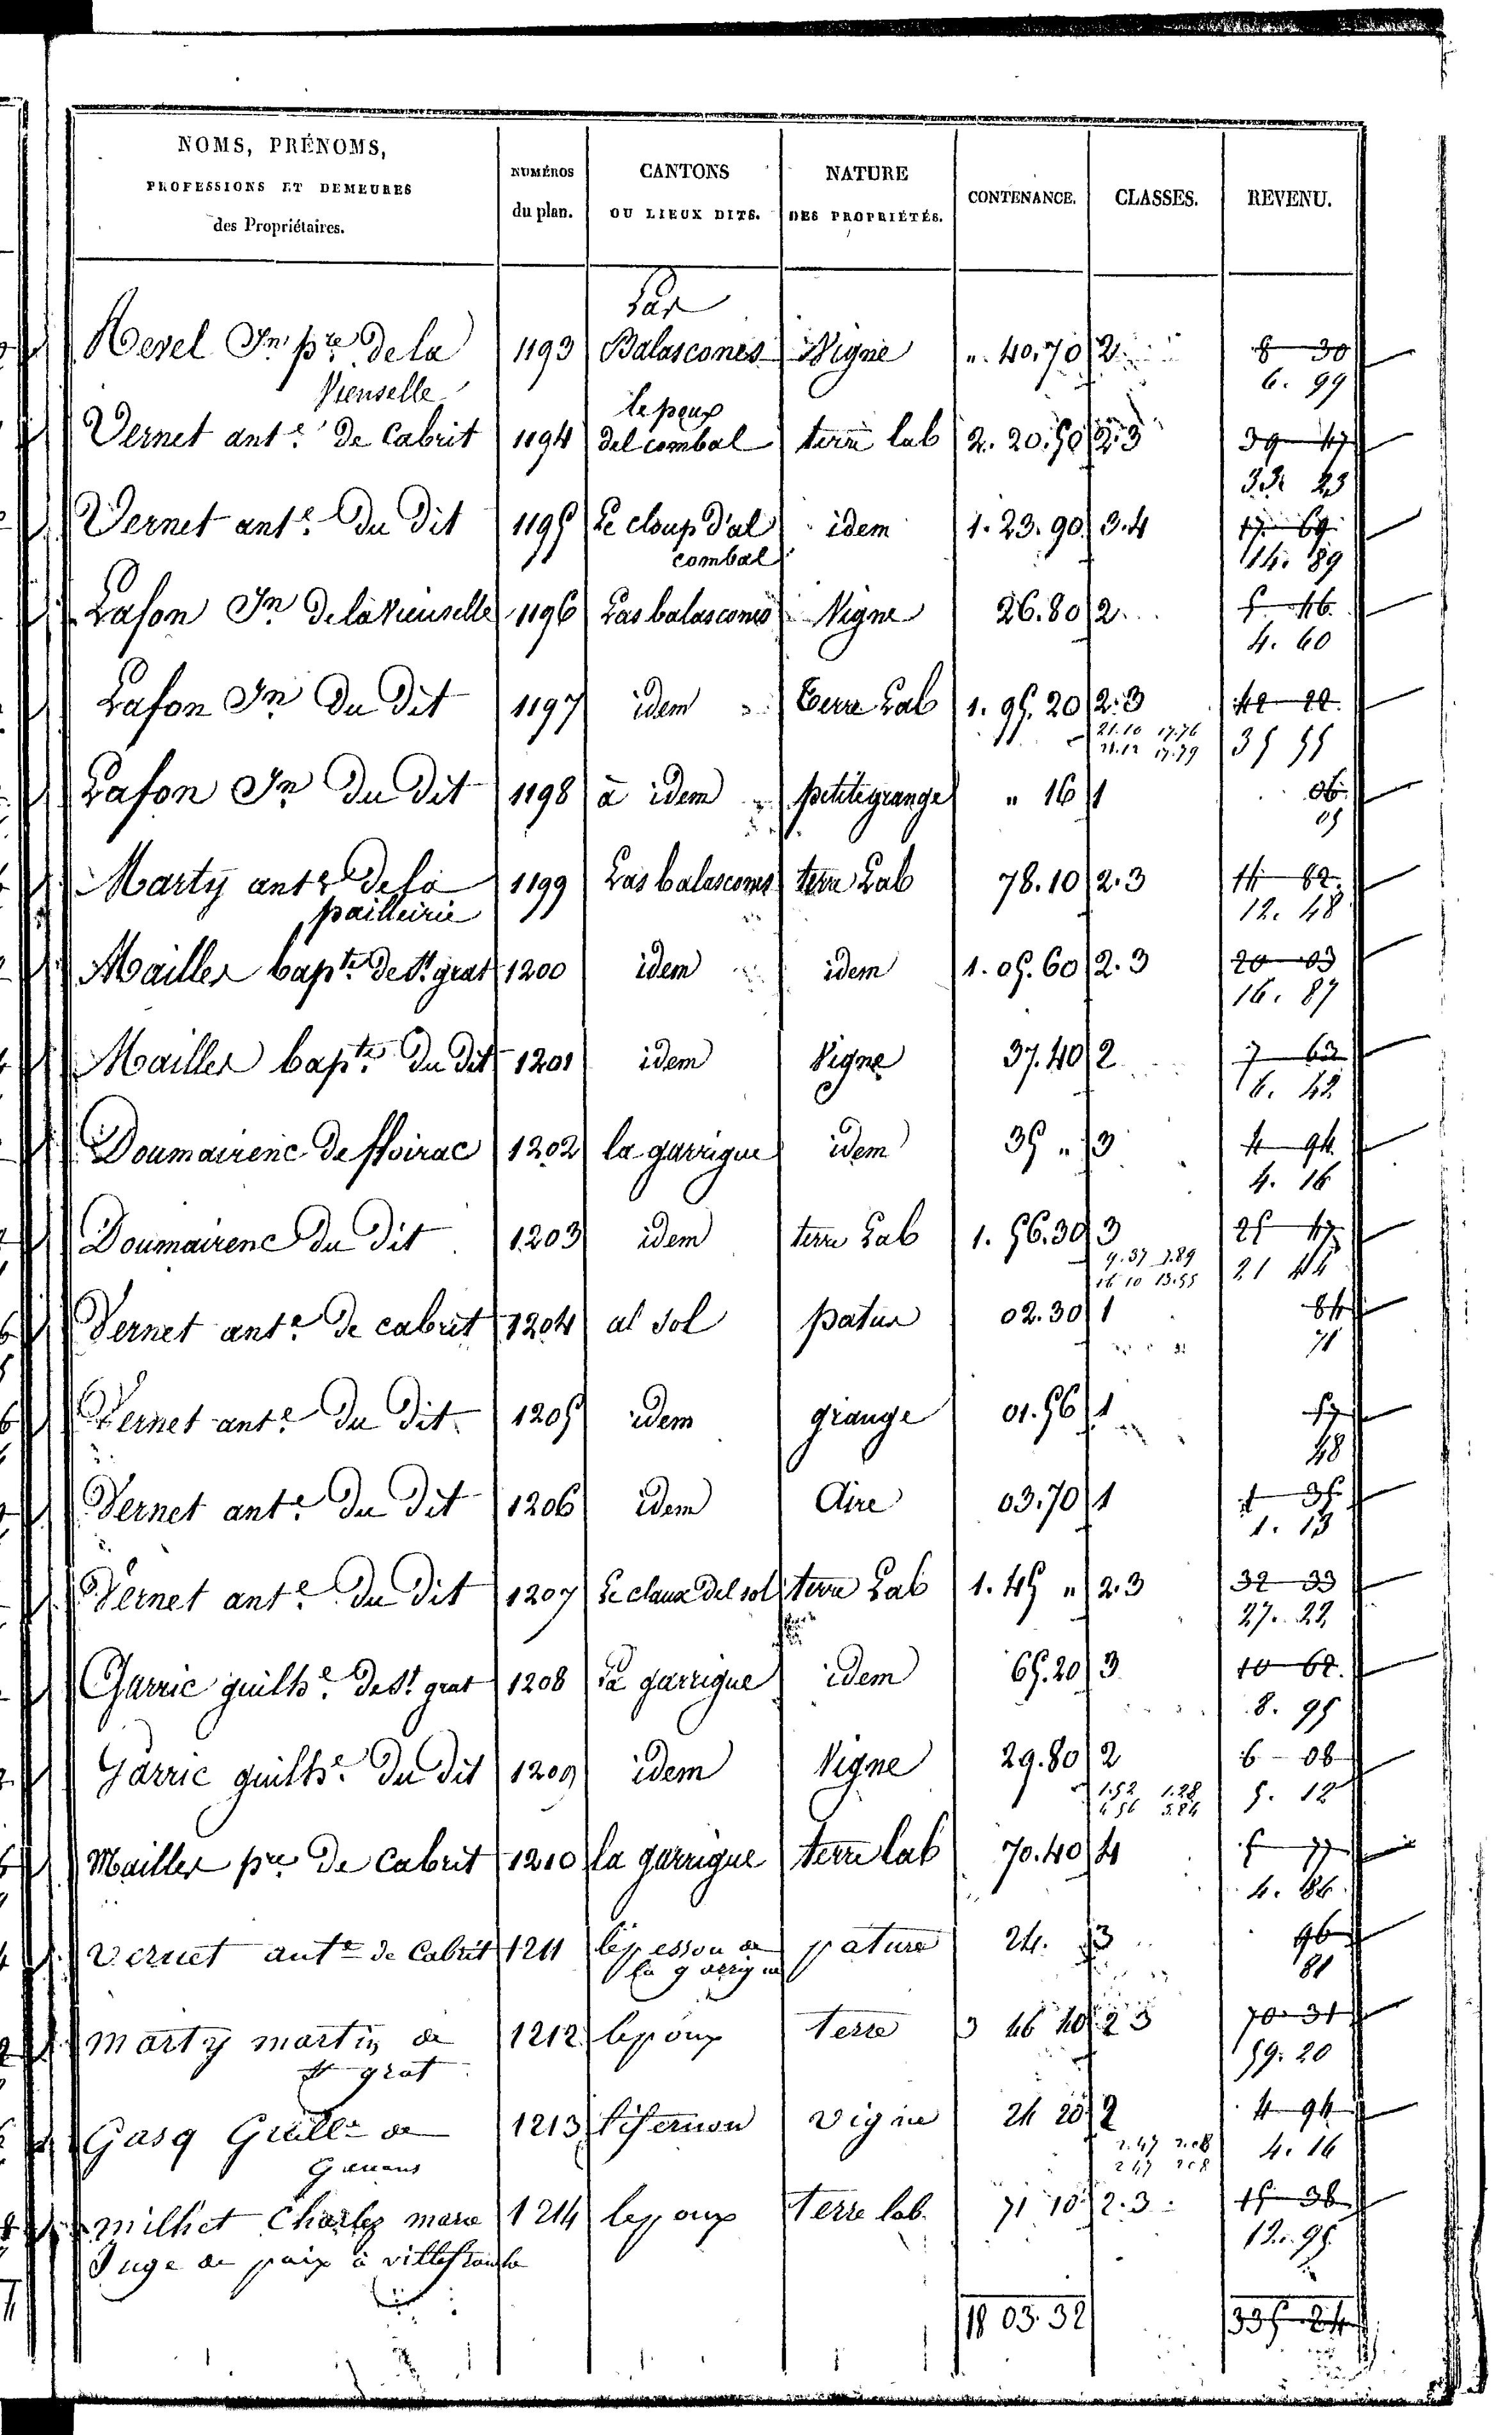 NOMS, PRÉNOMS,
PROFESSIONS ET DEMEURES
des Propriétaires.
NUMÉROS
du plan.
CANTONS
OU LIEUX DITS.
NATURE
DES PROPRIÉTÉS.
CONTENANCE.
CLASSES.
REVENU.
Las
Revel Jn pre de la 1193 Balascones Vigne ". 40.70 2 8 30
Vienselle 6. 99
le poux
Vernet ante de Cabrit 1194 del combal terre lab 2. 20.50 2.3 39 47
33 23
Vernet ante du dit 1195 Le cloup d'al idem 1. 23. 90 3.4 17. 69
combal 14. 89
Lafon Jn de la Vienselle 1196 Las balascones Vigne 26.80 2 5 46
4. 60
Lafon Jn du dit 1197 idem terre Lab 1. 95. 20 2.3 42 22
21.10 17.76
21.12 17.79 35 55
Lafon Jn du dit 1198 à idem petite grange " 16 1 06
05
Marty ante de la 1199 Las balascones terre Lab 78.10 2.3 14 82
pailleirie 12. 48
Mailles bapte de St grat 1200 idem idem 1. 05. 60 2.3 20 03
16. 87
Mailles bapte du dit 1201 idem Vigne 37.40 2 7 63
6. 42
Doumairenc de ffoirac 1202 la garrigue idem 35 " 3 4 94
4. 16
Doumairenc du dit 1203 idem terre Lab 1. 56.30 3 25 47
9.37 7.89
16 10 13.55 21 44
Vernet ante de cabrit 1204 al sol patus 02.30 1 84
71
Vernet ante du dit 1205 idem grange 01.56 1 57
48
Vernet ante du dit 1206 idem Aire 03.70 1 1 35
1. 13
Vernet ante du dit 1207 Le claux del sol terre Lab 1. 45 " 2.3 32 33
27. 22
Garric guilhe de St grat 1208 la garrigue idem 65.20 3 10 62
8. 95
Garric guilhe du dit 1209 idem Vigne 29.80 2 6 08
1.52 1.28
4 56 3.84 5. 12
Mailles pre de Cabrit 1210 la garrigue terre lab 70.40 4 5 77
4. 86
Vernet ante de Cabrit 1211 le pesson de pature 24. 3 96
la garrigue 81
marty martin de 1212 le poux terre 3 46 40 2 3 70 31
st grat 59. 20
Gasq Guille de 1213 vigne 24 20 2 4 94
2.47 2.08
2 47 2 08 4. 16
milhet Charles marie 1214 le poux terre lab. 71 10 2.3 15 38
Juge de paix à villefranche 12. 95
18 03 32 335 24